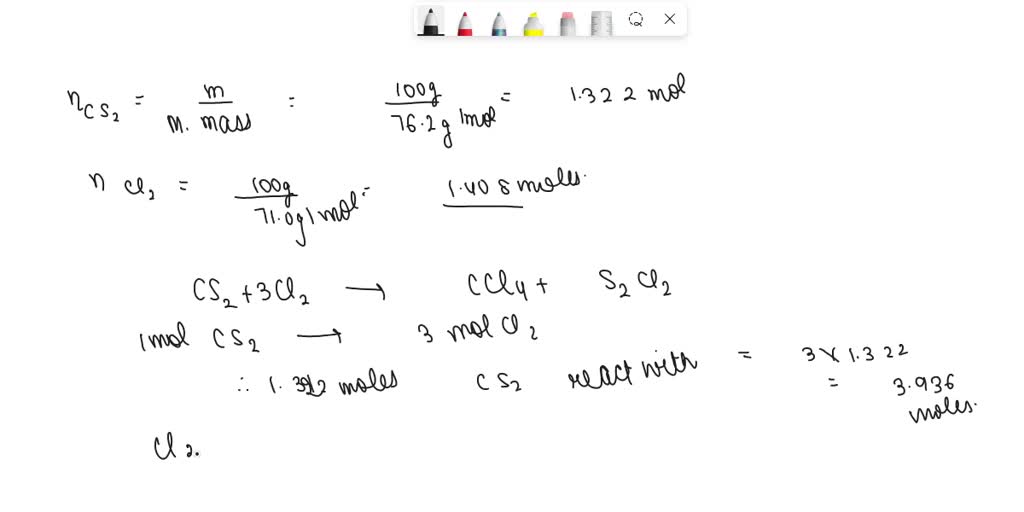 nCS₂ = m / M. mass = 100g / 76.2g/mol = 1.322 mol
n Cl₂ = 100g / 71.0g/mol = 1.408 moles.
CS₂ + 3Cl₂ → CCl4 + S₂Cl₂
1mol CS₂ → 3 mol Cl₂
∴ moles CS₂ react with = 3 × 1.322
= 3.936
moles.
Cl₂.